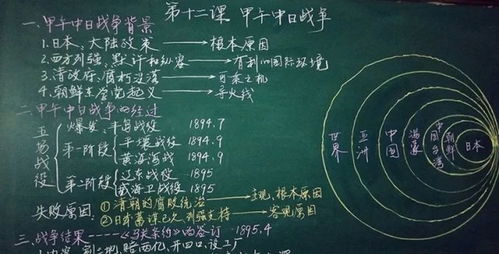 第十二课 甲午中日战争
一.甲午中日战争背景
1.日本:大陆政策→根本原因
2.西方列强:默许和纵容→有利的国际环境
3.清政府:腐朽没落→可乘之机
4.朝鲜东学党起义→导火线
二.甲午中日战争的经过
五场战役
爆发:丰岛战役 1894.7
第一阶段 平壤战役 1894.9
黄海海战 1894.9
第二阶段 辽东战役 1895
威海卫战役 1895
失败原因:①清朝的腐败统治→主观、根本原因
②日本蓄谋已久,列强支持→客观原因
三.战争结果----《马关条约》的签订 1895.4
割三地,赔两亿,开四口,设工厂
世界
亚洲
中国
满蒙
中国台湾
朝鲜
日本